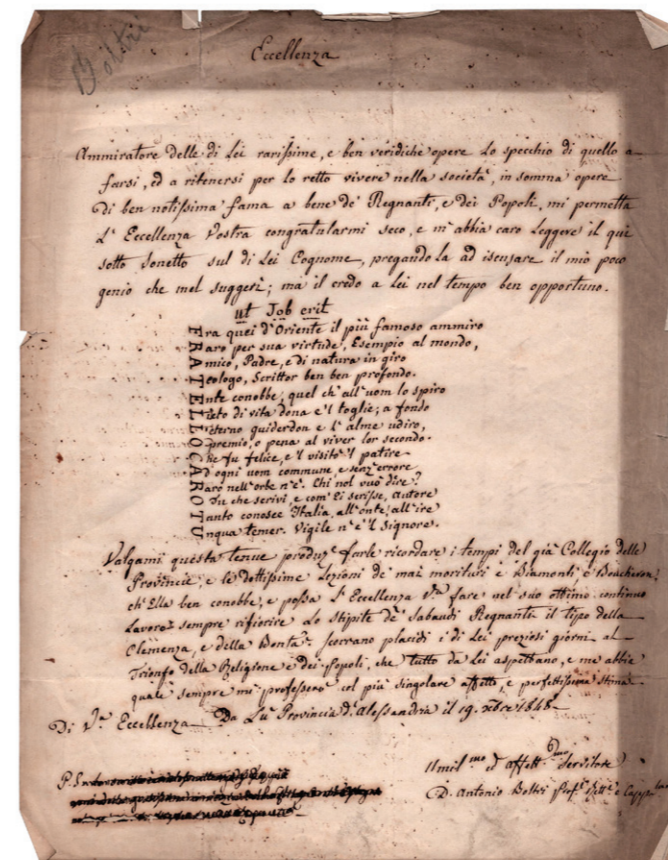 Boltri
Eccellenza
Ammiratore delle di Lei rarissime, e ben veridiche opere lo specchio di quello a
farsi, ed a ritenersi per lo retto vivere nella società, in somma opere
di ben notissima fama a bene de' Regnanti, e dei Popoli, mi permetta
L'Eccellenza Vostra congratularmi seco, e m'abbia caro leggere il qui
sotto Sonetto sul di Lei Cognome, pregandola ad iscusare il mio poco
genio che mel suggerì; ma il credo a Lei nel tempo ben opportuno.
ut Job erit
Era quei d'Oriente il più famoso ammiro
Raro per sua virtude, Esempio al mondo,
Amico, Padre, e di natura in giro
Teologo, Scrittor ben ben profondo.
Ente conobbe, quel ch'all'uom lo spiro
Lieto di vita dona e'l toglie; a fondo
L'eterno guiderdon e l'alme udiro,
O premio, o pena al viver lor secondo.
Che fu felice, e'l visitò 'l patire
A d'ogni uom commune, e senz'errore
Raro nell'orbe n'è. Chi nol vuò dire?
O Tu che scrivi, e com'Ei scrisse, autore
Tanto conosce Italia, all'onte, all'ire
Unqua temer. Vigile n'è 'l Signore.
Valgami questa tenue produz.e farle ricordare i tempi del già Collegio delle
Provincie, e le dottissime Lezioni de' mai morituri e Biamonti e Boucheron,
ch'Ella ben conobbe, e possa l'Eccellenza V.ra fare nel suo ottimo continuo
Lavoro sempre rifiorire lo Stipite de' Sabaudi Regnanti il tipo della
Clemenza, e della Bontà. Scorrano placidi i di Lei preziosi giorni al
Trionfo della Religione e dei popoli, che tutto da Lei aspettano, e me abbia
quale sempre mi professerò col più singolare affetto, e perfettissima stima
Di V.a Eccellenza Da Lu Provincia d'Alessandria il 19. xbre 1848
P. S.
Umil.mo ed affett.mo Servitore
D. Antonio Boltri Prof.e